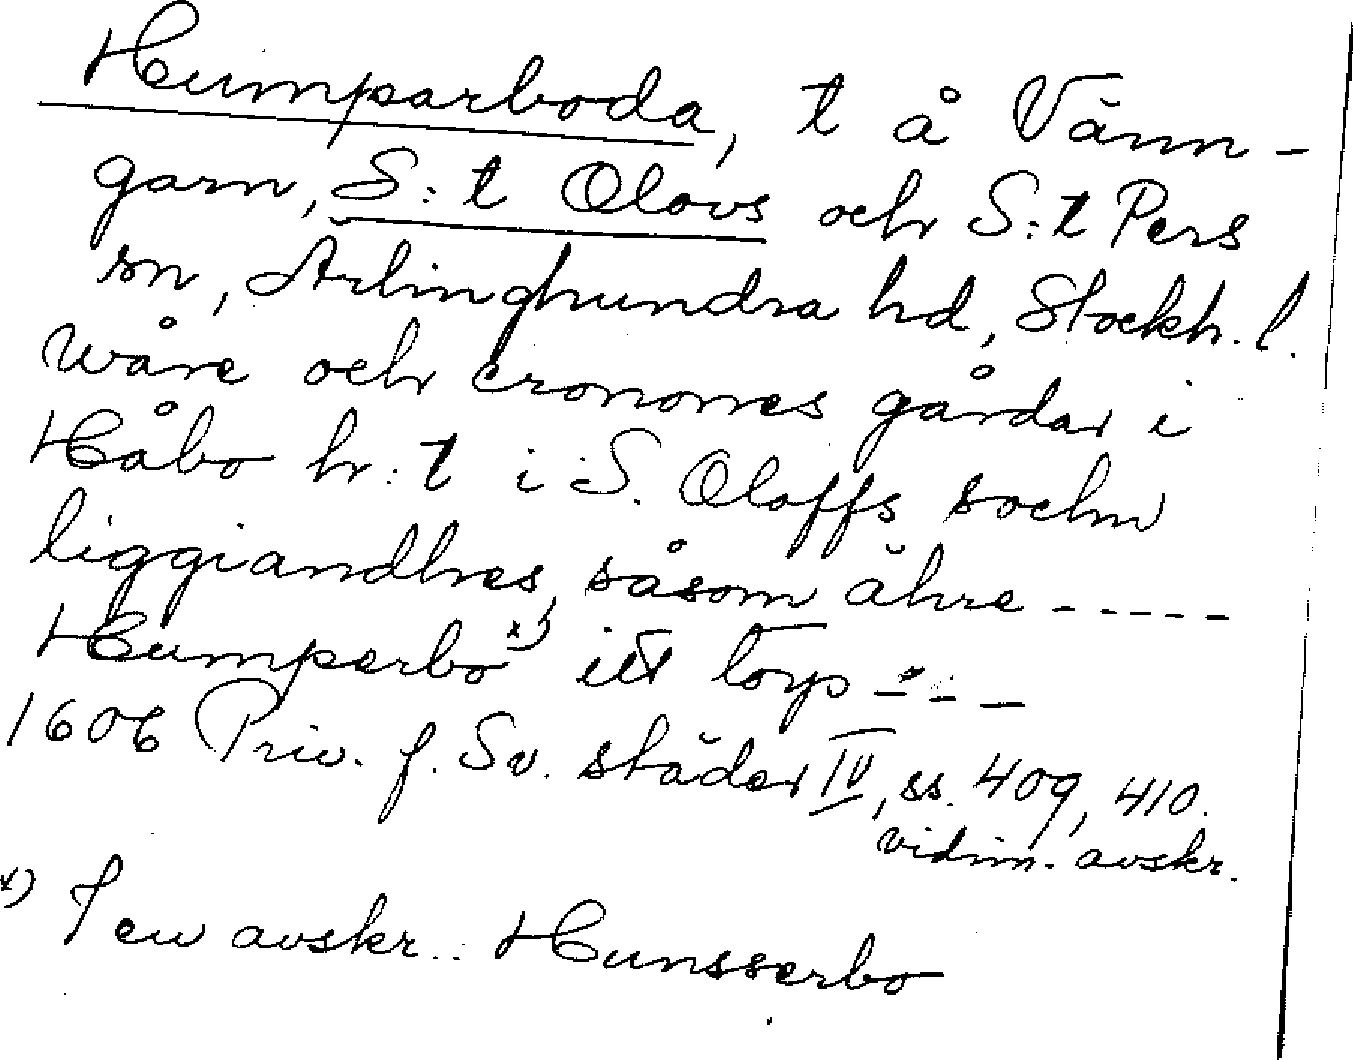 Humparboda, t å Vänn-
garn, S:t Olovs och S:t Pers
sn, Ärlinghundra hd, Stockh. l.
Wåre och cronones gårdar i
Håbo hr:t i S. Oloffs sochn
liggiandhes, såsom ähre -----
Humperbo x) itt torp ---
1606 Priv. f. Sv. städer IV, ss. 409, 410.
vidim. avskr.
x) I en avskr.: Hunsserbo